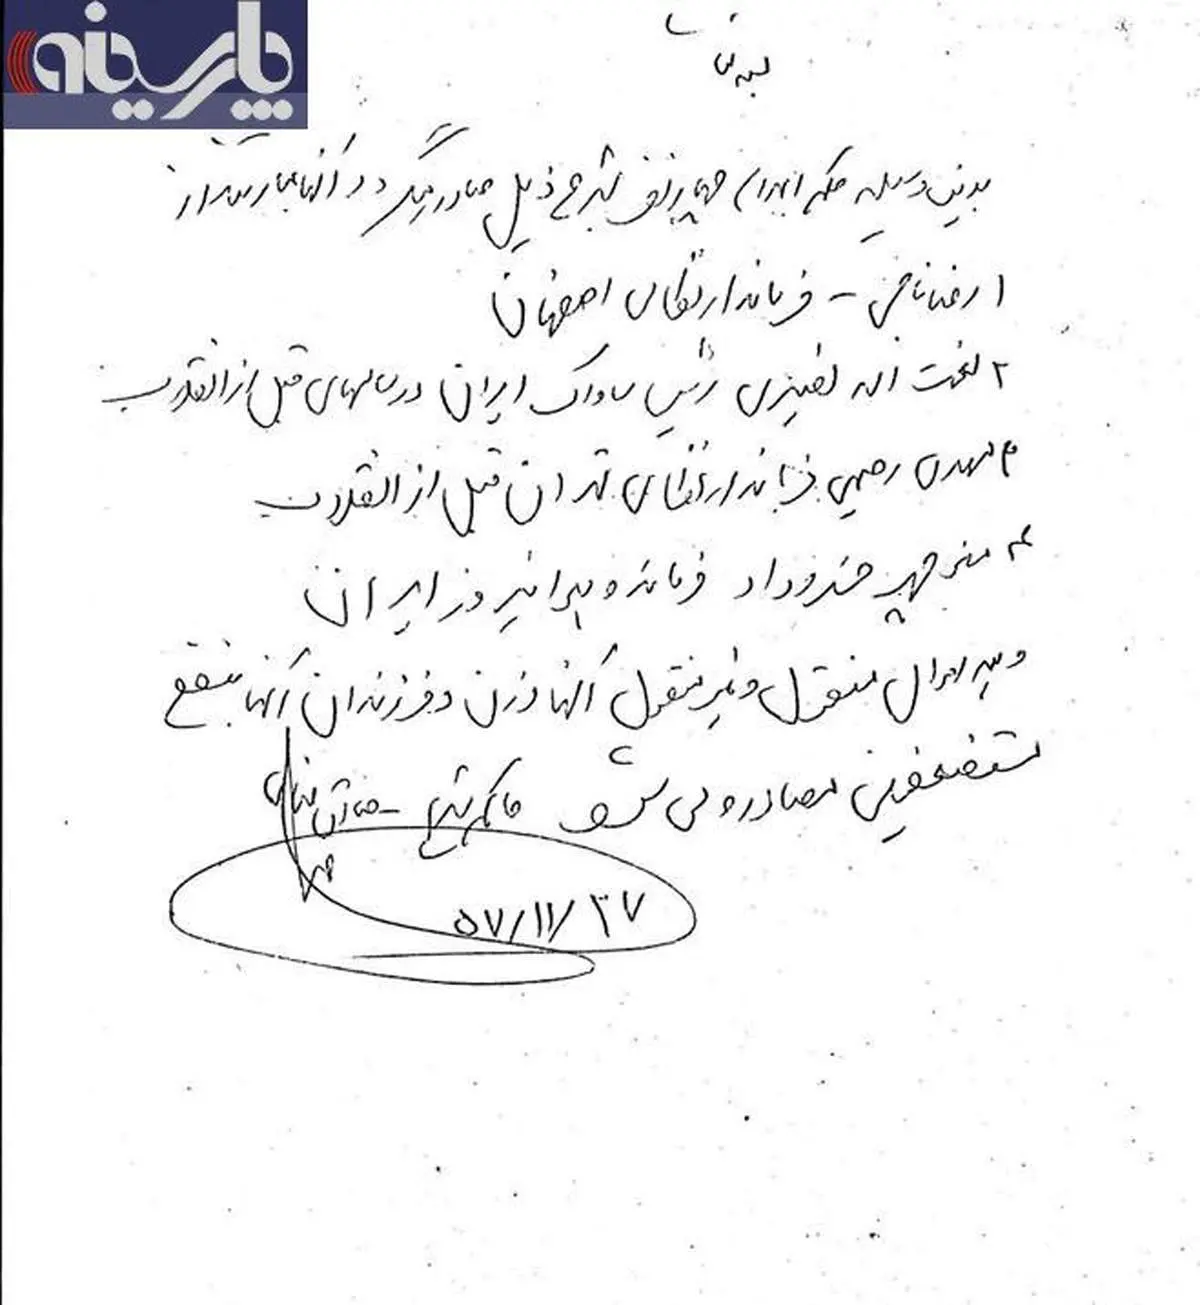 پارسینه
بسمه تعالی
بدین وسیله حکم اعدام چهار نفر بشرح ذیل صادر میگردد و آنها عبارتند از
۱ رضا ناجی - فرماندار نظامی اصفهان
۲ نعمت اله نصیری رئیس ساواک ایران در سالهای قبل از انقلاب
۳ مهدی رحیمی فرماندار نظامی تهران قبل از انقلاب
۴ منوچهر خسروداد فرمانده هوانیروز ایران
و اموال منقول و غیر منقول آنها و زن و فرزندان آنها بنفع
مستضعفین مصادره می شود حاکم شرع - صادق خلخالی
۵۷/۱۱/۲۷